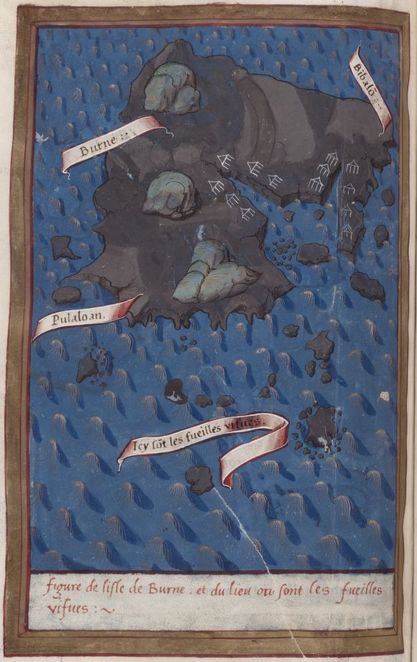 Bibalō:
Burne:
Pulaloan.
Icy sōt les fueilles vifues.
figure de lisle de Burne . et du lieu ou sont les fueilles
vifues : ~